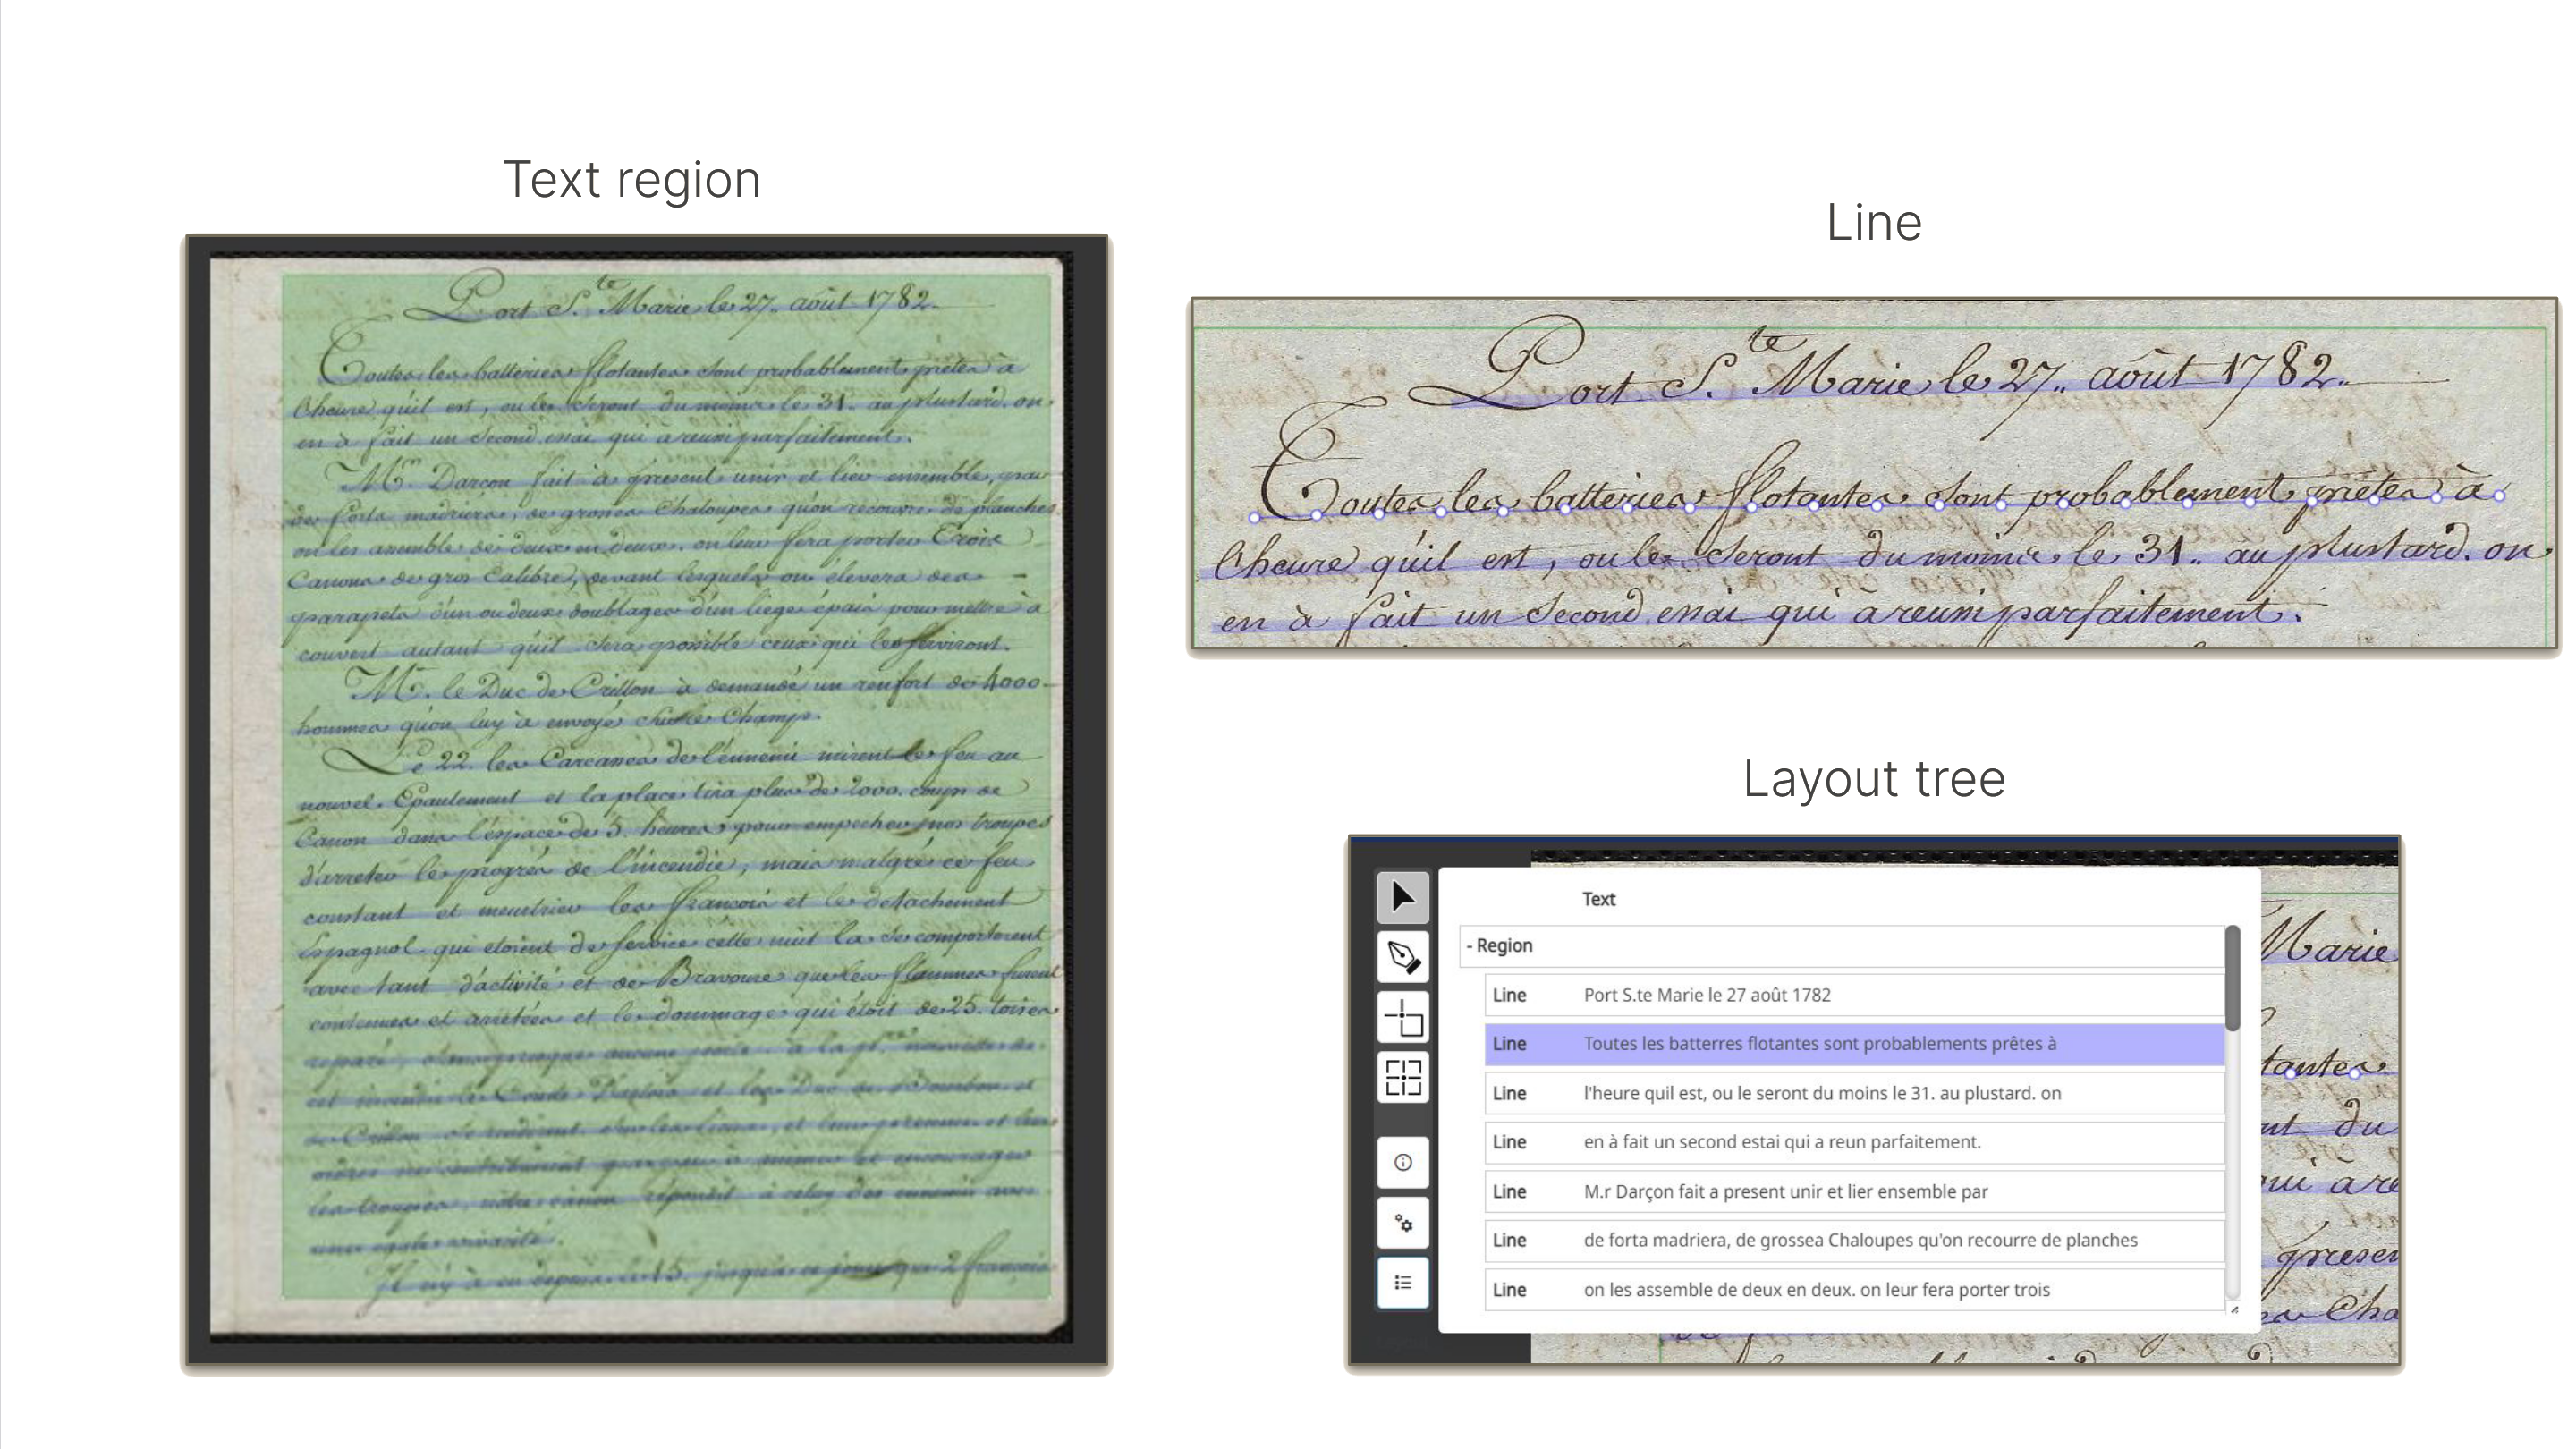 Text region
Port S.te Marie le 27. août 1782.
Toutes les batteries flotantes sont probablement prêtes à
lheure qu'il est, ou les seront du moins le 31. au plustard. on
en à fait un second essai qui à reussi parfaitement.
Mr. Darcon fait à présent unir et lier ensemble, par
de forts madriers, de grosses Chaloupes qu'on recouvre de planches
on les assemble de deux en deux. on leur fera porter Trois
Canons de gros Calibre, devant lesquels on élevera des
parapets d'un ou deux doublages d'un liege épais pour mettre à
couvert autant qu'il sera possible ceux qui les serviront.
Mr. le Duc de Crillon à demandé un renfort de 4000
hommes qu'on luy à envoyé sur le Champ.
Le 22. les Carcasses de l'ennemi mirent le feu au
nouvel Epaulement et la place tira plus de 2000. coups de
Canon dans l'espace de 5. heures pour empecher nos troupes
d'arreter le progrés de l'incendie, mais malgré ce feu
constant et meurtrier les francois et le detachement
Espagnol qui etoient de service cette nuit la se comporterent
avec tant d'activité et de Bravoure que les flammes furent
contenues et arretées et le dommage qui étoit de 25. toises
reparé, aucune perte à la
cet incendie le Comte et le Duc de Bourbon et
de Crillon se rendirent sur les lieux, et leur presence et leurs
ordres ne contribuerent pas peu à animer et encourager
les troupes, notre canon répondit à celuy des ennemis avec
une egale vivacité.
Il n'y à eu depuis le 15. jusqu'à ce jour que 2 francois
Line
Port S.te Marie le 27. août 1782.
Toutes les batteries flotantes sont probablement prêtes à
lheure qu'il est, ou les seront du moins le 31. au plustard. on
en à fait un second essai qui à reussi parfaitement.
Layout tree
Text
- Region
Line Port S.te Marie le 27 août 1782
Line Toutes les batterres flotantes sont probablements prêtes à
Line l'heure quil est, ou le seront du moins le 31. au plustard. on
Line en à fait un second estai qui a reun parfaitement.
Line M.r Darçon fait a present unir et lier ensemble par
Line de forta madriera, de grossea Chaloupes qu'on recourre de planches
Line on les assemble de deux en deux. on leur fera porter trois
Marie